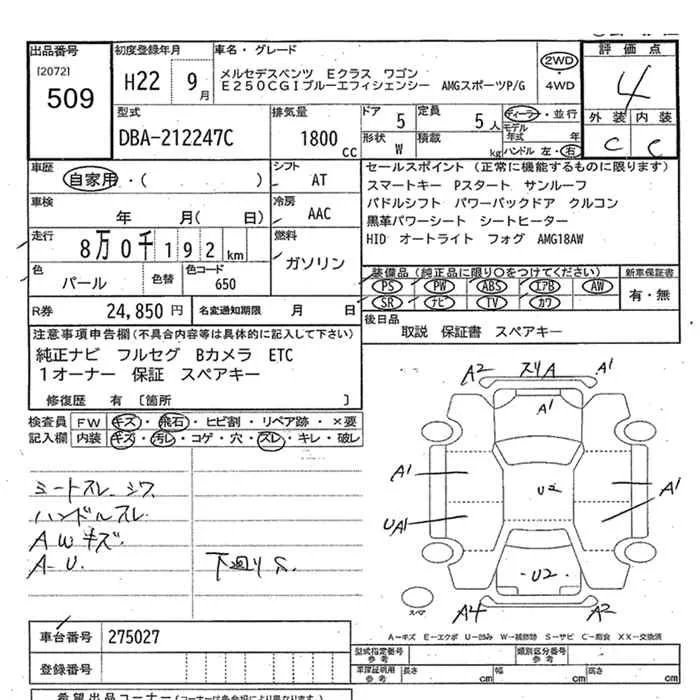 出品番号 初度登録年月 車名・グレード 評価点
[2072]
509
H22 9月
メルセデスベンツ Eクラス ワゴン
E250CGIブルーエフィシェンシー AMGスポーツP/G
2WD・4WD
4
型式 排気量 ドア 5 定員 5人 ディーラー・並行 外装 内装
DBA-212247C 1800cc
形状 W 積載 kg
モデル年式 年
ハンドル 左・右
C C
車歴 シフト セールスポイント(正常に機能するものに限ります)
自家用・( ) AT
スマートキー Pスタート サンルーフ
車検 冷房
年 月( 日) AAC
パドルシフト パワーバックドア クルコン
黒革パワーシート シートヒーター
走行 燃料
8万0千192km ガソリン
HID オートライト フォグ AMG18AW
色 色替 色コード
パール 650
装備品(純正品に限り○をつけてください) 新車保証書
PS PW ABS エアB AW 有・無
SR ナビ TV カワ
R券 24,850円 名変通知期限 月 日
後日品
取説 保証書 スペアキー
注意事項申告欄(不具合内容等は具体的に記入して下さい)
純正ナビ フルセグ Bカメラ ETC
1オーナー 保証 スペアキー
修復歴 有 〔箇所 〕
検査員 FW キズ・飛石・ヒビ割・リペア跡・×要
記入欄 内装 キズ・汚レ・コゲ・穴・スレ・キレ・破レ
シートスレ シワ
ハンドルスレ
AWキズ
A-U 下廻りS
A2 スリA A1
A1
A1 U2 A1
UA1
U2
スペア A4 A2
A-キズ E-エクボ U-凹み W-補修跡 S-サビ C-腐食 XX-交換済
車台番号 275027
型式指定番号 参考 類別区分番号 参考
登録番号
参考 長さ cm 幅 cm 高さ cm
希望出品コーナー